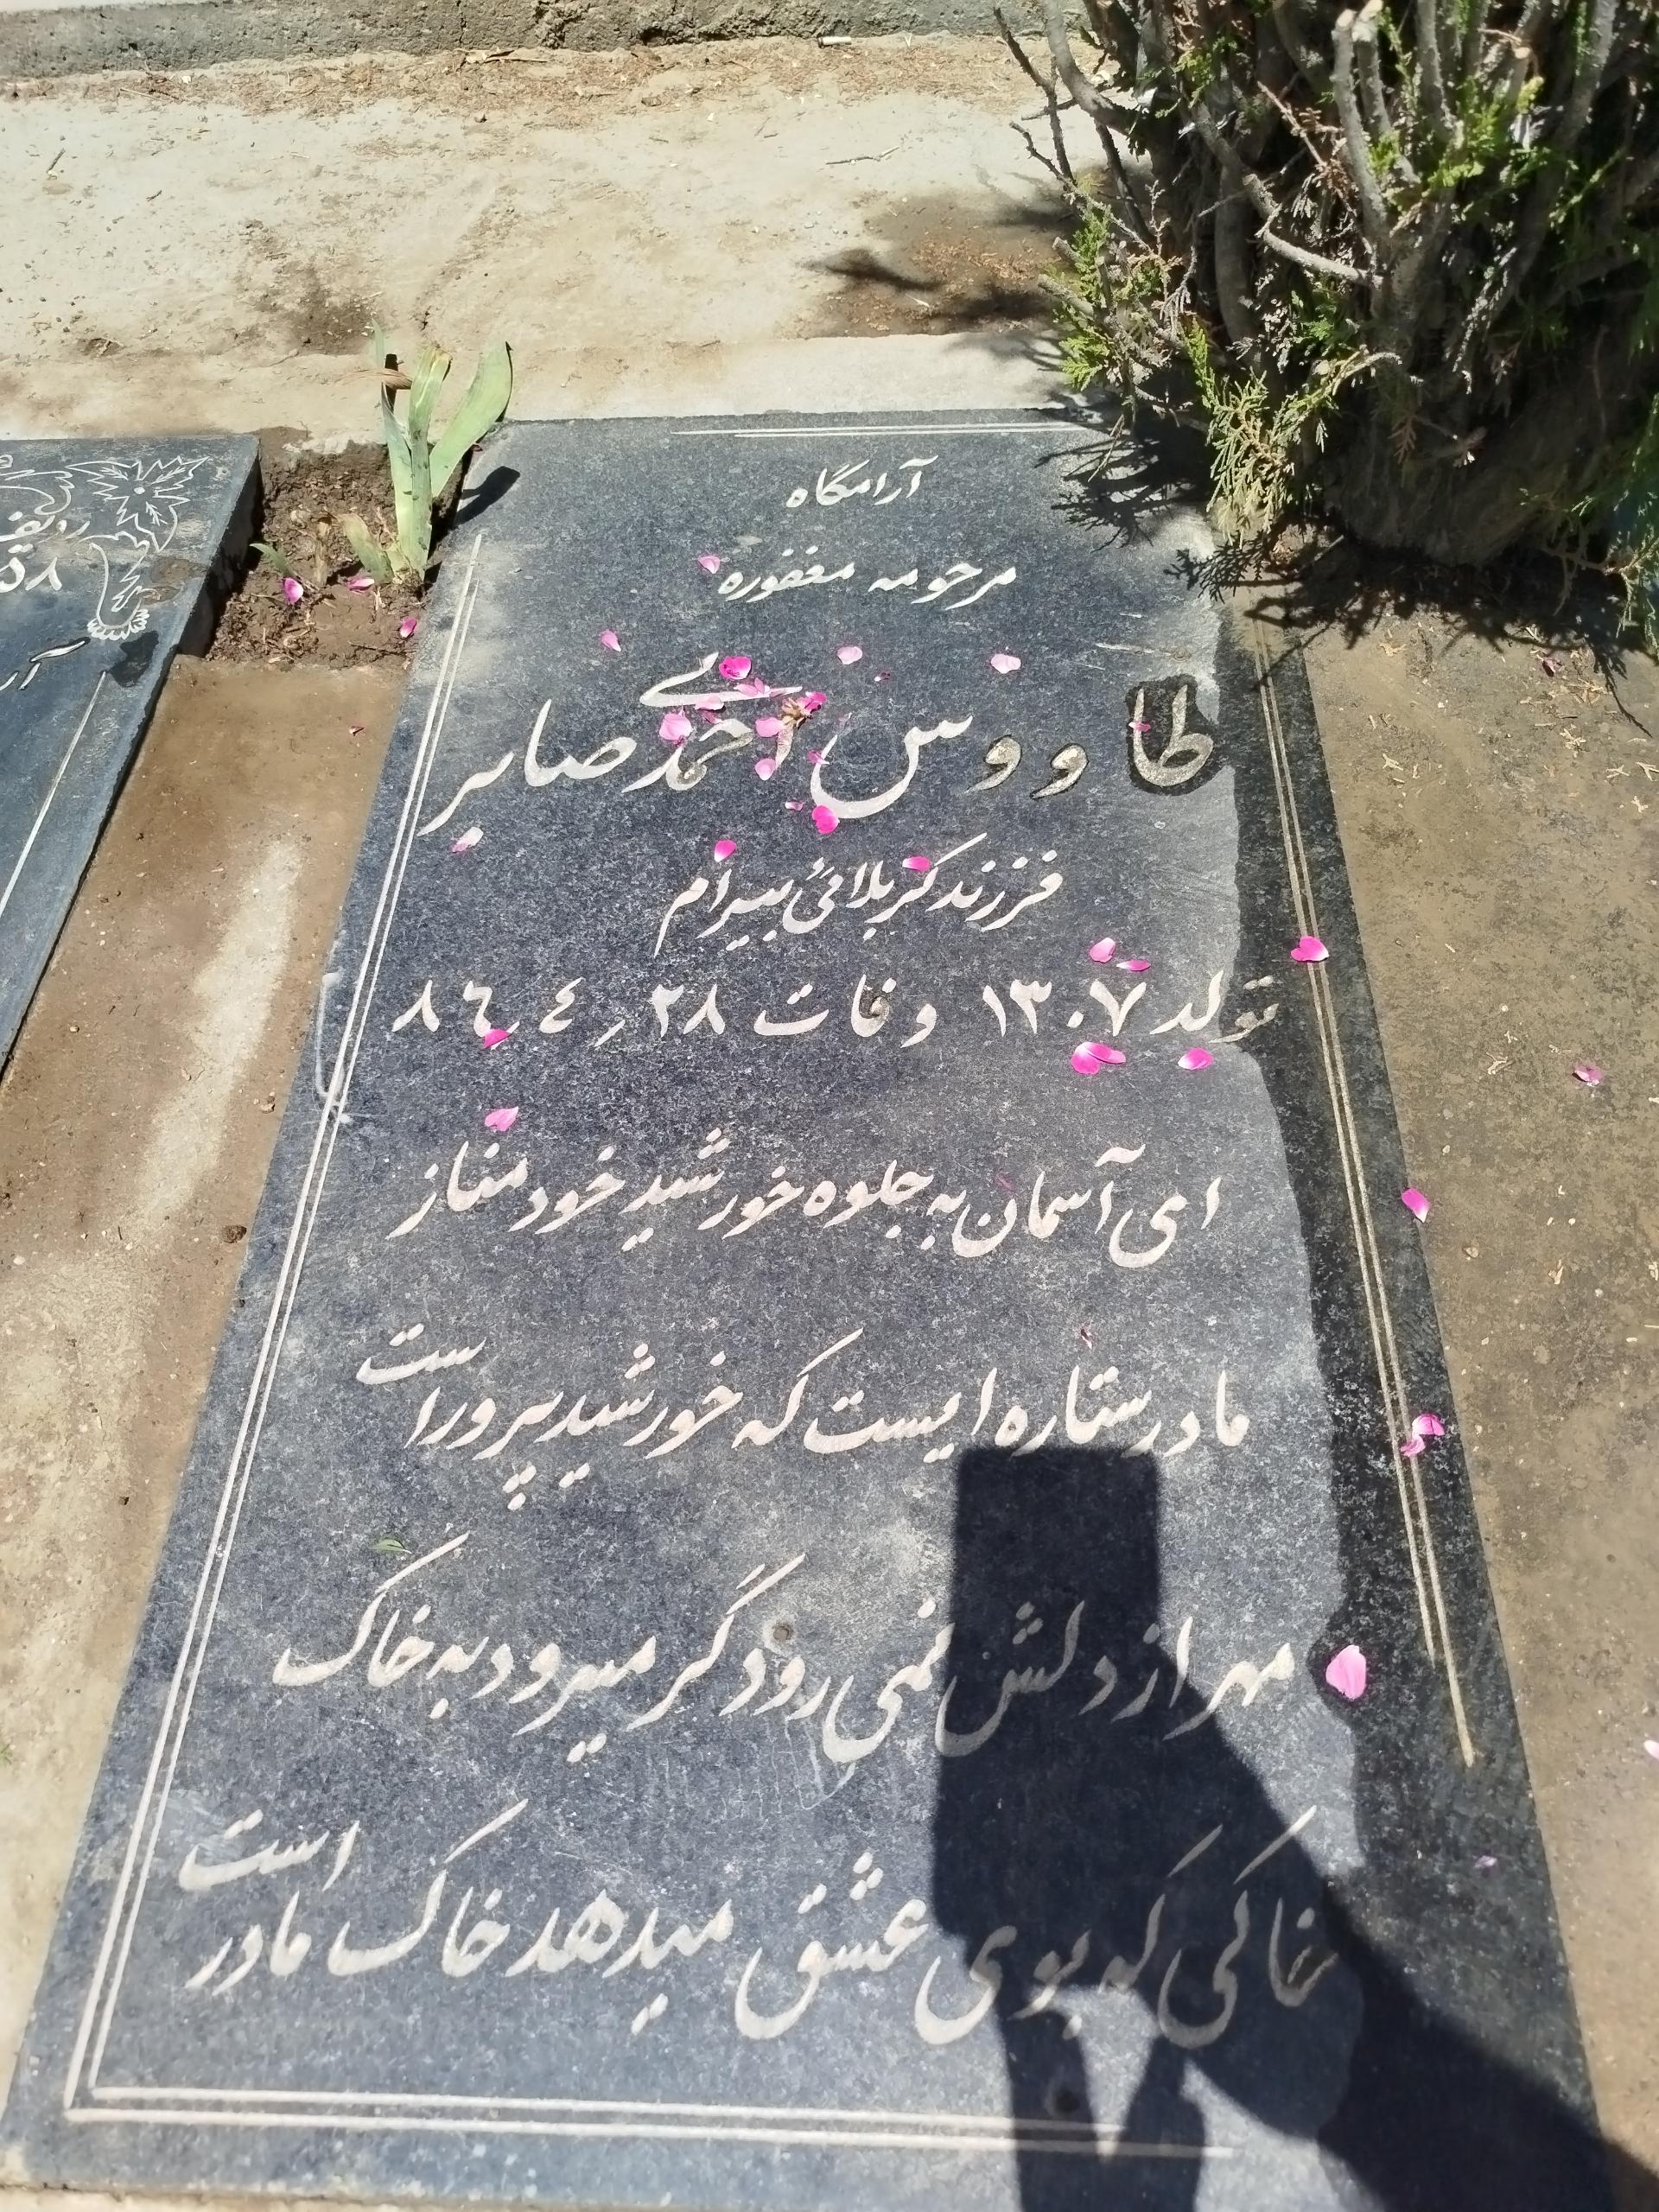 آرامگاه
مرحومه مغفوره
طاووس احمدی صابر
فرزند کربلائی بیرام
تولد ۱۳۰۷ وفات ۲۸٫۴٫۸۶
ای آسمان به جلوه خورشید خود مناز
مادر ستاره ایست که خورشید پرور است
مهر از دلش نمی رود گر میرود به خاک
خاکی که بوی عشق میدهد خاک مادر است
ردیف
۵۸